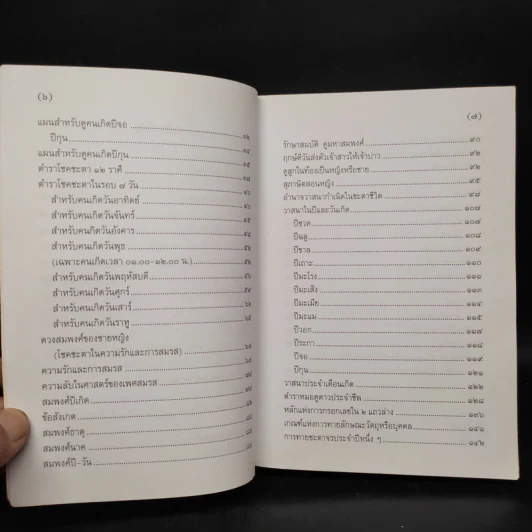 (๖)
แผนสำหรับดูคนเกิดปีจอ
ปีกุน
แผนสำหรับดูคนเกิดปีกุน
ตำราโชคชะตา ๑๒ ราศี
ตำราโชคชะตาในรอบ ๗ วัน
สำหรับคนเกิดวันอาทิตย์
สำหรับคนเกิดวันจันทร์
สำหรับคนเกิดวันอังคาร
สำหรับคนเกิดวันพุธ
(เฉพาะคนเกิดเวลา ๐๑.๐๐-๑๒.๐๐ น.)
สำหรับคนเกิดวันพฤหัสบดี
สำหรับคนเกิดวันศุกร์
สำหรับคนเกิดวันเสาร์
สำหรับคนเกิดวันราหู
ดวงสมพงศ์ของชายหญิง
(โชคชะตาในความรักและการสมรส)
ความรักและการสมรส
ความลับในศาสตร์ของเพศสมรส
สมพงศ์ปีเกิด
ข้อสังเกต
สมพงศ์ธาตุ
สมพงศ์นาค
สมพงศ์ปี-วัน
(๗)
รักษาสมบัติ คูมหาสมพงศ์ ๙๐
ฤกษ์ดีวันส่งตัวเจ้าสาวให้เจ้าบ่าว ๙๒
ดูลูกในท้องเป็นหญิงหรือชาย ๙๒
สุภาษิตสอนหญิง ๙๕
อำนาจวาสนากำเนิดในชะตาชีวิต ๙๘
วาสนาในปีและวันเกิด ๑๐๗
ปีชวด ๑๐๗
ปีฉลู ๑๐๘
ปีขาล ๑๐๙
ปีเถาะ ๑๑๐
ปีมะโรง ๑๑๐
ปีมะเส็ง ๑๑๓
ปีมะเมีย ๑๑๔
ปีมะแม ๑๑๕
ปีวอก ๑๑๗
ปีระกา ๑๑๘
ปีจอ ๑๑๙
ปีกุน ๑๒๑
วาสนาประจำเดือนเกิด ๑๒๒
ตำราหมอดูดาวประจำชีพ ๑๒๘
หลักแห่งการกรอกเลขใน ๒ แถวล่าง ๑๓๖
เกณฑ์แห่งการทายลักษณะวัตถุหรือบุคคล ๑๔๑
การทายชะตาจรประจำปีหนึ่ง ๆ ๑๔๒